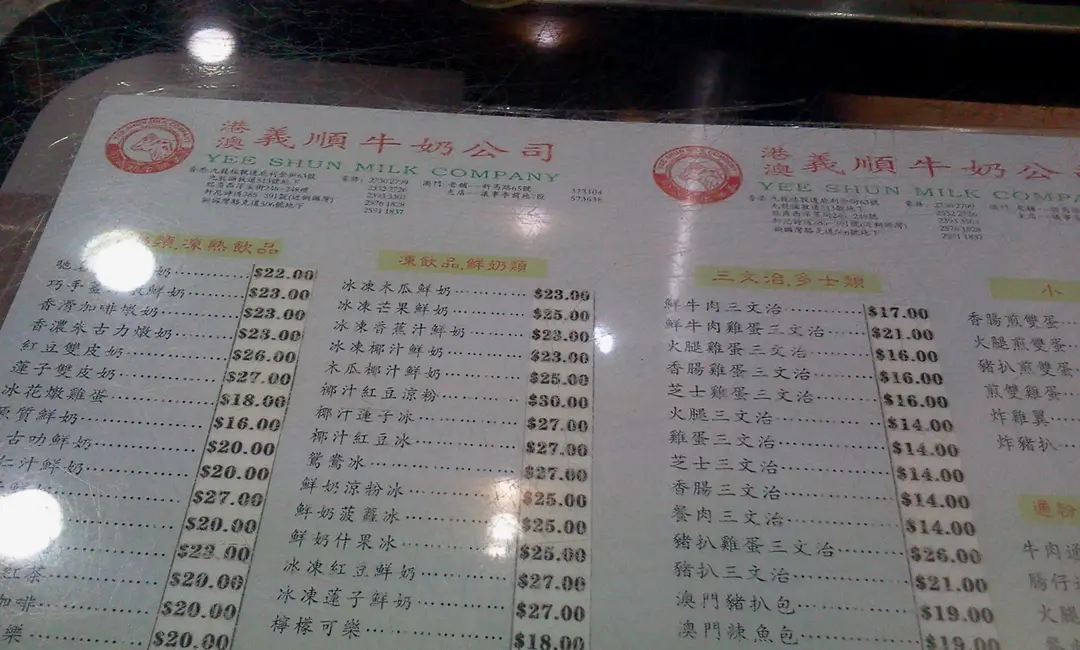 港澳義順牛奶公司
YEE SHUN MILK COMPANY
凍熱飲品
$22.00
巧手 鮮奶 $23.00
香滑咖啡燉奶 $23.00
香濃朱古力燉奶 $23.00
紅豆雙皮奶 $26.00
蓮子雙皮奶 $27.00
冰花燉雞蛋 $18.00
原質鮮奶 $16.00
古叻鮮奶 $20.00
仁汁鮮奶 $20.00
$27.00
$20.00
$23.00
紅茶 $20.00
咖啡 $20.00
樂 $20.00
凍飲品,鮮奶類
冰凍木瓜鮮奶 $23.00
冰凍芒果鮮奶 $25.00
冰凍香蕉汁鮮奶 $23.00
冰凍椰汁鮮奶 $23.00
木瓜椰汁鮮奶 $25.00
椰汁紅豆涼粉 $30.00
椰汁蓮子冰 $27.00
椰汁紅豆冰 $27.00
鴛鴦冰 $27.00
鮮奶涼粉冰 $25.00
鮮奶菠蘿冰 $25.00
鮮奶什果冰 $25.00
冰凍紅豆鮮奶 $27.00
冰凍蓮子鮮奶 $27.00
檸檬可樂 $18.00
港澳義順牛奶公
YEE SHUN MILK COM
三文治,多士類
鮮牛肉三文治 $17.00
鮮牛肉雞蛋三文治 $21.00
火腿雞蛋三文治 $16.00
香腸雞蛋三文治 $16.00
芝士雞蛋三文治 $16.00
火腿三文治 $14.00
雞蛋三文治 $14.00
芝士三文治 $14.00
香腸三文治 $14.00
餐肉三文治 $14.00
豬扒雞蛋三文治 $26.00
豬扒三文治 $21.00
澳門豬扒包 $19.00
澳門辣魚包 $19.00
小
香腸煎雙蛋
火腿煎雙蛋
豬扒煎雙蛋
煎雙雞蛋
炸雞翼
炸豬扒
通粉
牛肉通
腸仔
火腿